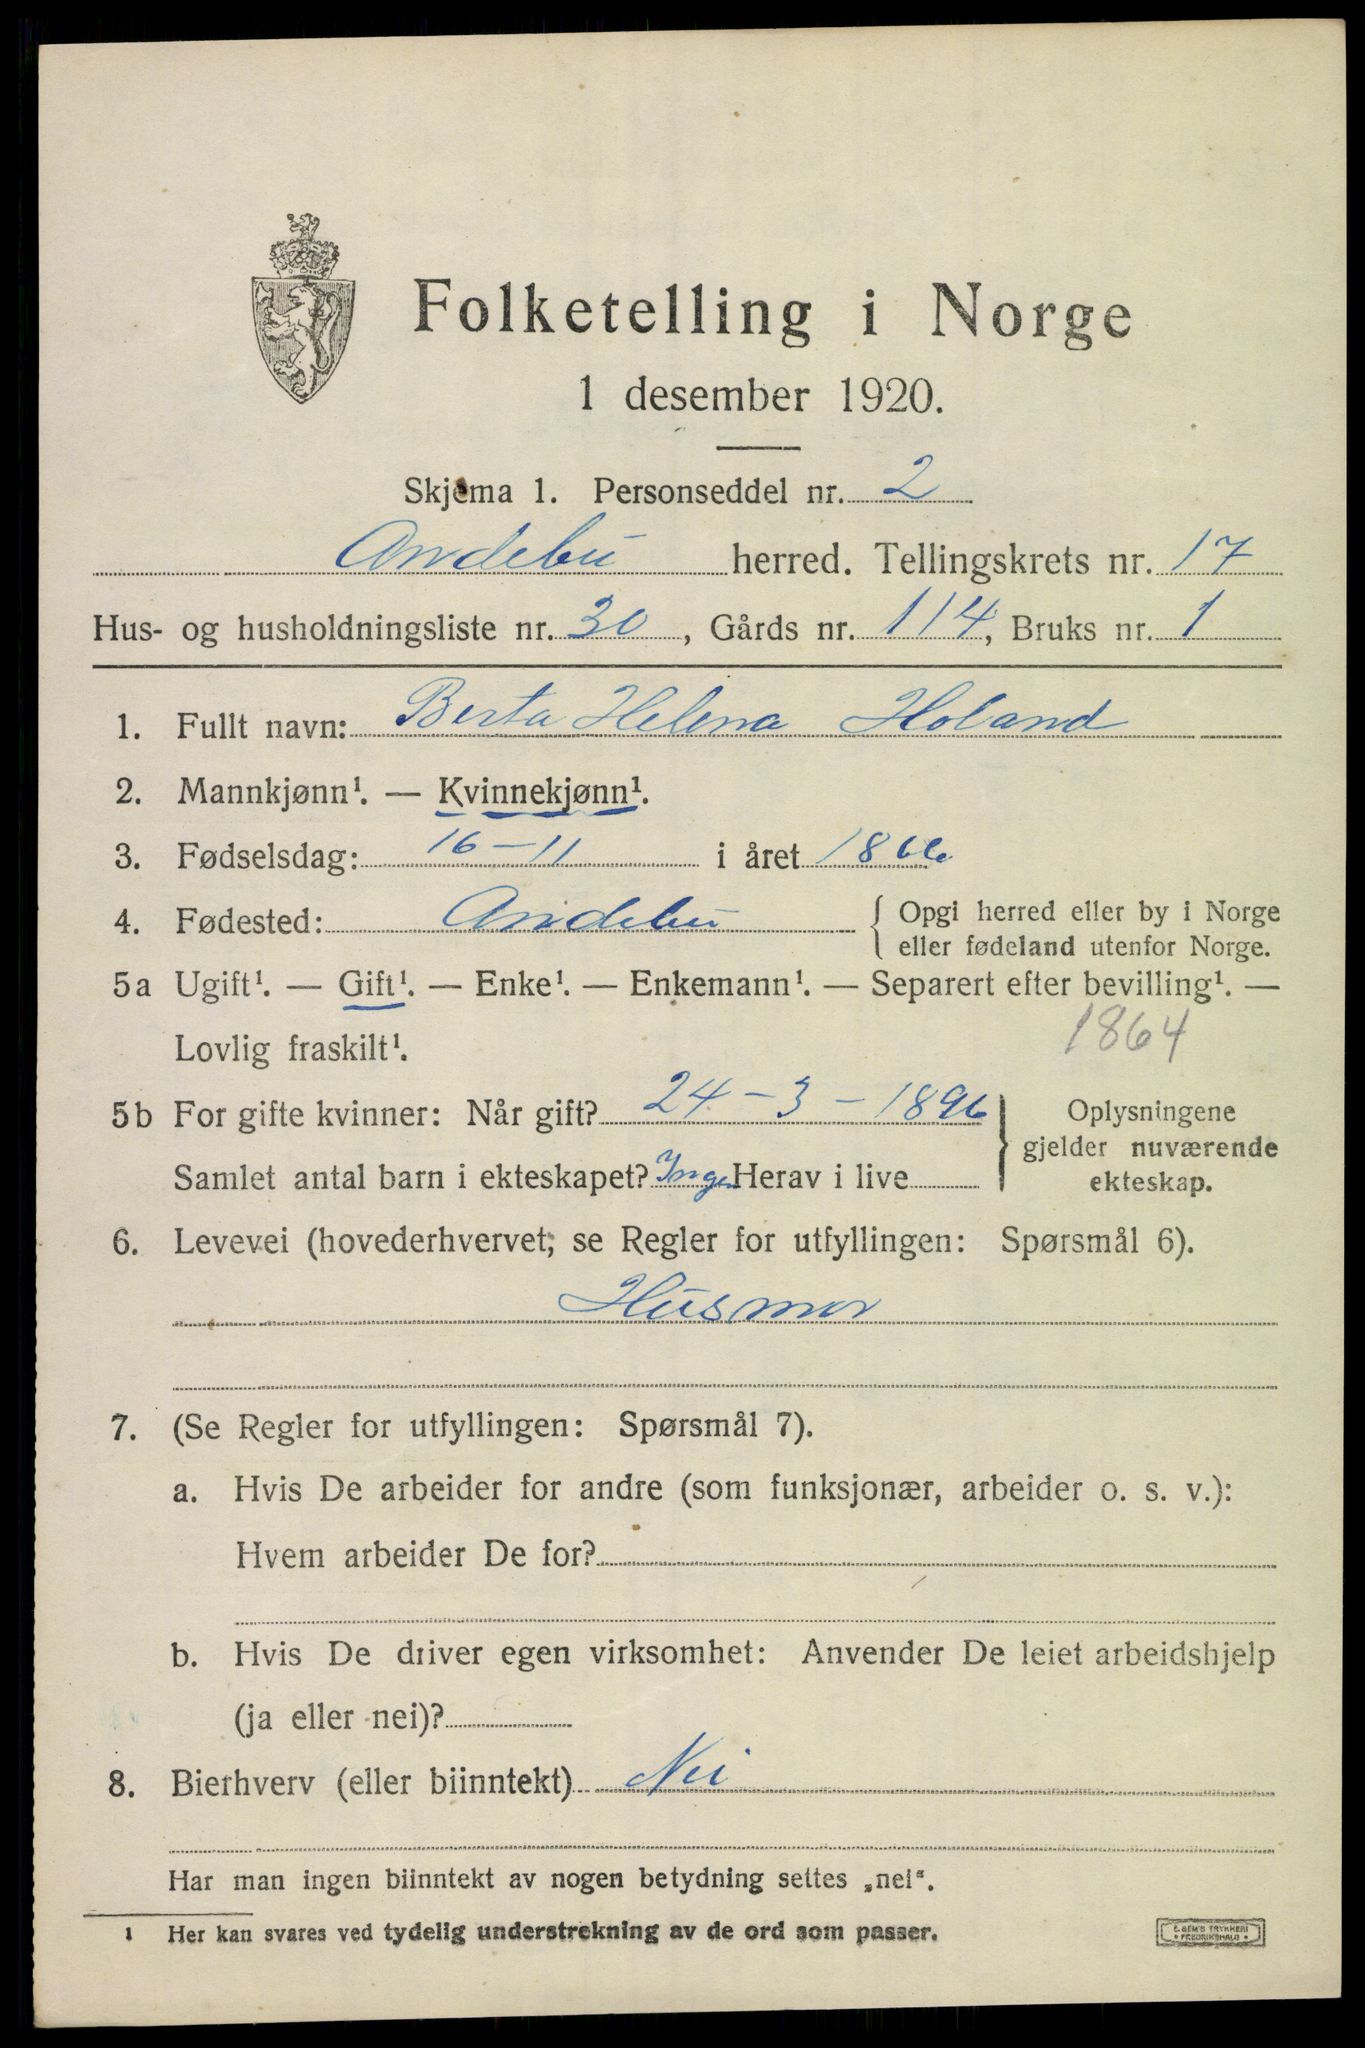 Folketelling i Norge
1 desember 1920.
Skjema 1. Personseddel nr. 2
Andebu herred. Tellingskrets nr. 17
Hus- og husholdningsliste nr. 30, Gårds nr. 114, Bruks nr. 1
1. Fullt navn: Berta Helena Holand
2. Mannkjønn¹. — Kvinnekjønn¹.
3. Fødselsdag: 16-11 i året 1866
4. Fødested: Andebu { Opgi herred eller by i Norge
eller fødeland utenfor Norge.
5a Ugift¹. — Gift¹. — Enke¹. — Enkemann¹. — Separert efter bevilling¹. —
Lovlig fraskilt¹. 1864
5b For gifte kvinner: Når gift? 24-3-1896
Samlet antal barn i ekteskapet? Ingen Herav i live
} Oplysningene
gjelder nuværende
ekteskap.
6. Levevei (hovederhvervet; se Regler for utfyllingen: Spørsmål 6).
Husmor
7. (Se Regler for utfyllingen: Spørsmål 7).
a. Hvis De arbeider for andre (som funksjonær, arbeider o. s. v.):
Hvem arbeider De for?
b. Hvis De driver egen virksomhet: Anvender De leiet arbeidshjelp
(ja eller nei)?
8. Bierhverv (eller biinntekt) Nei
Har man ingen biinntekt av nogen betydning settes „nei“.
1 Her kan svares ved tydelig understrekning av de ord som passer.
E. SEM'S TRYKKERI
FREDRIKSHALD